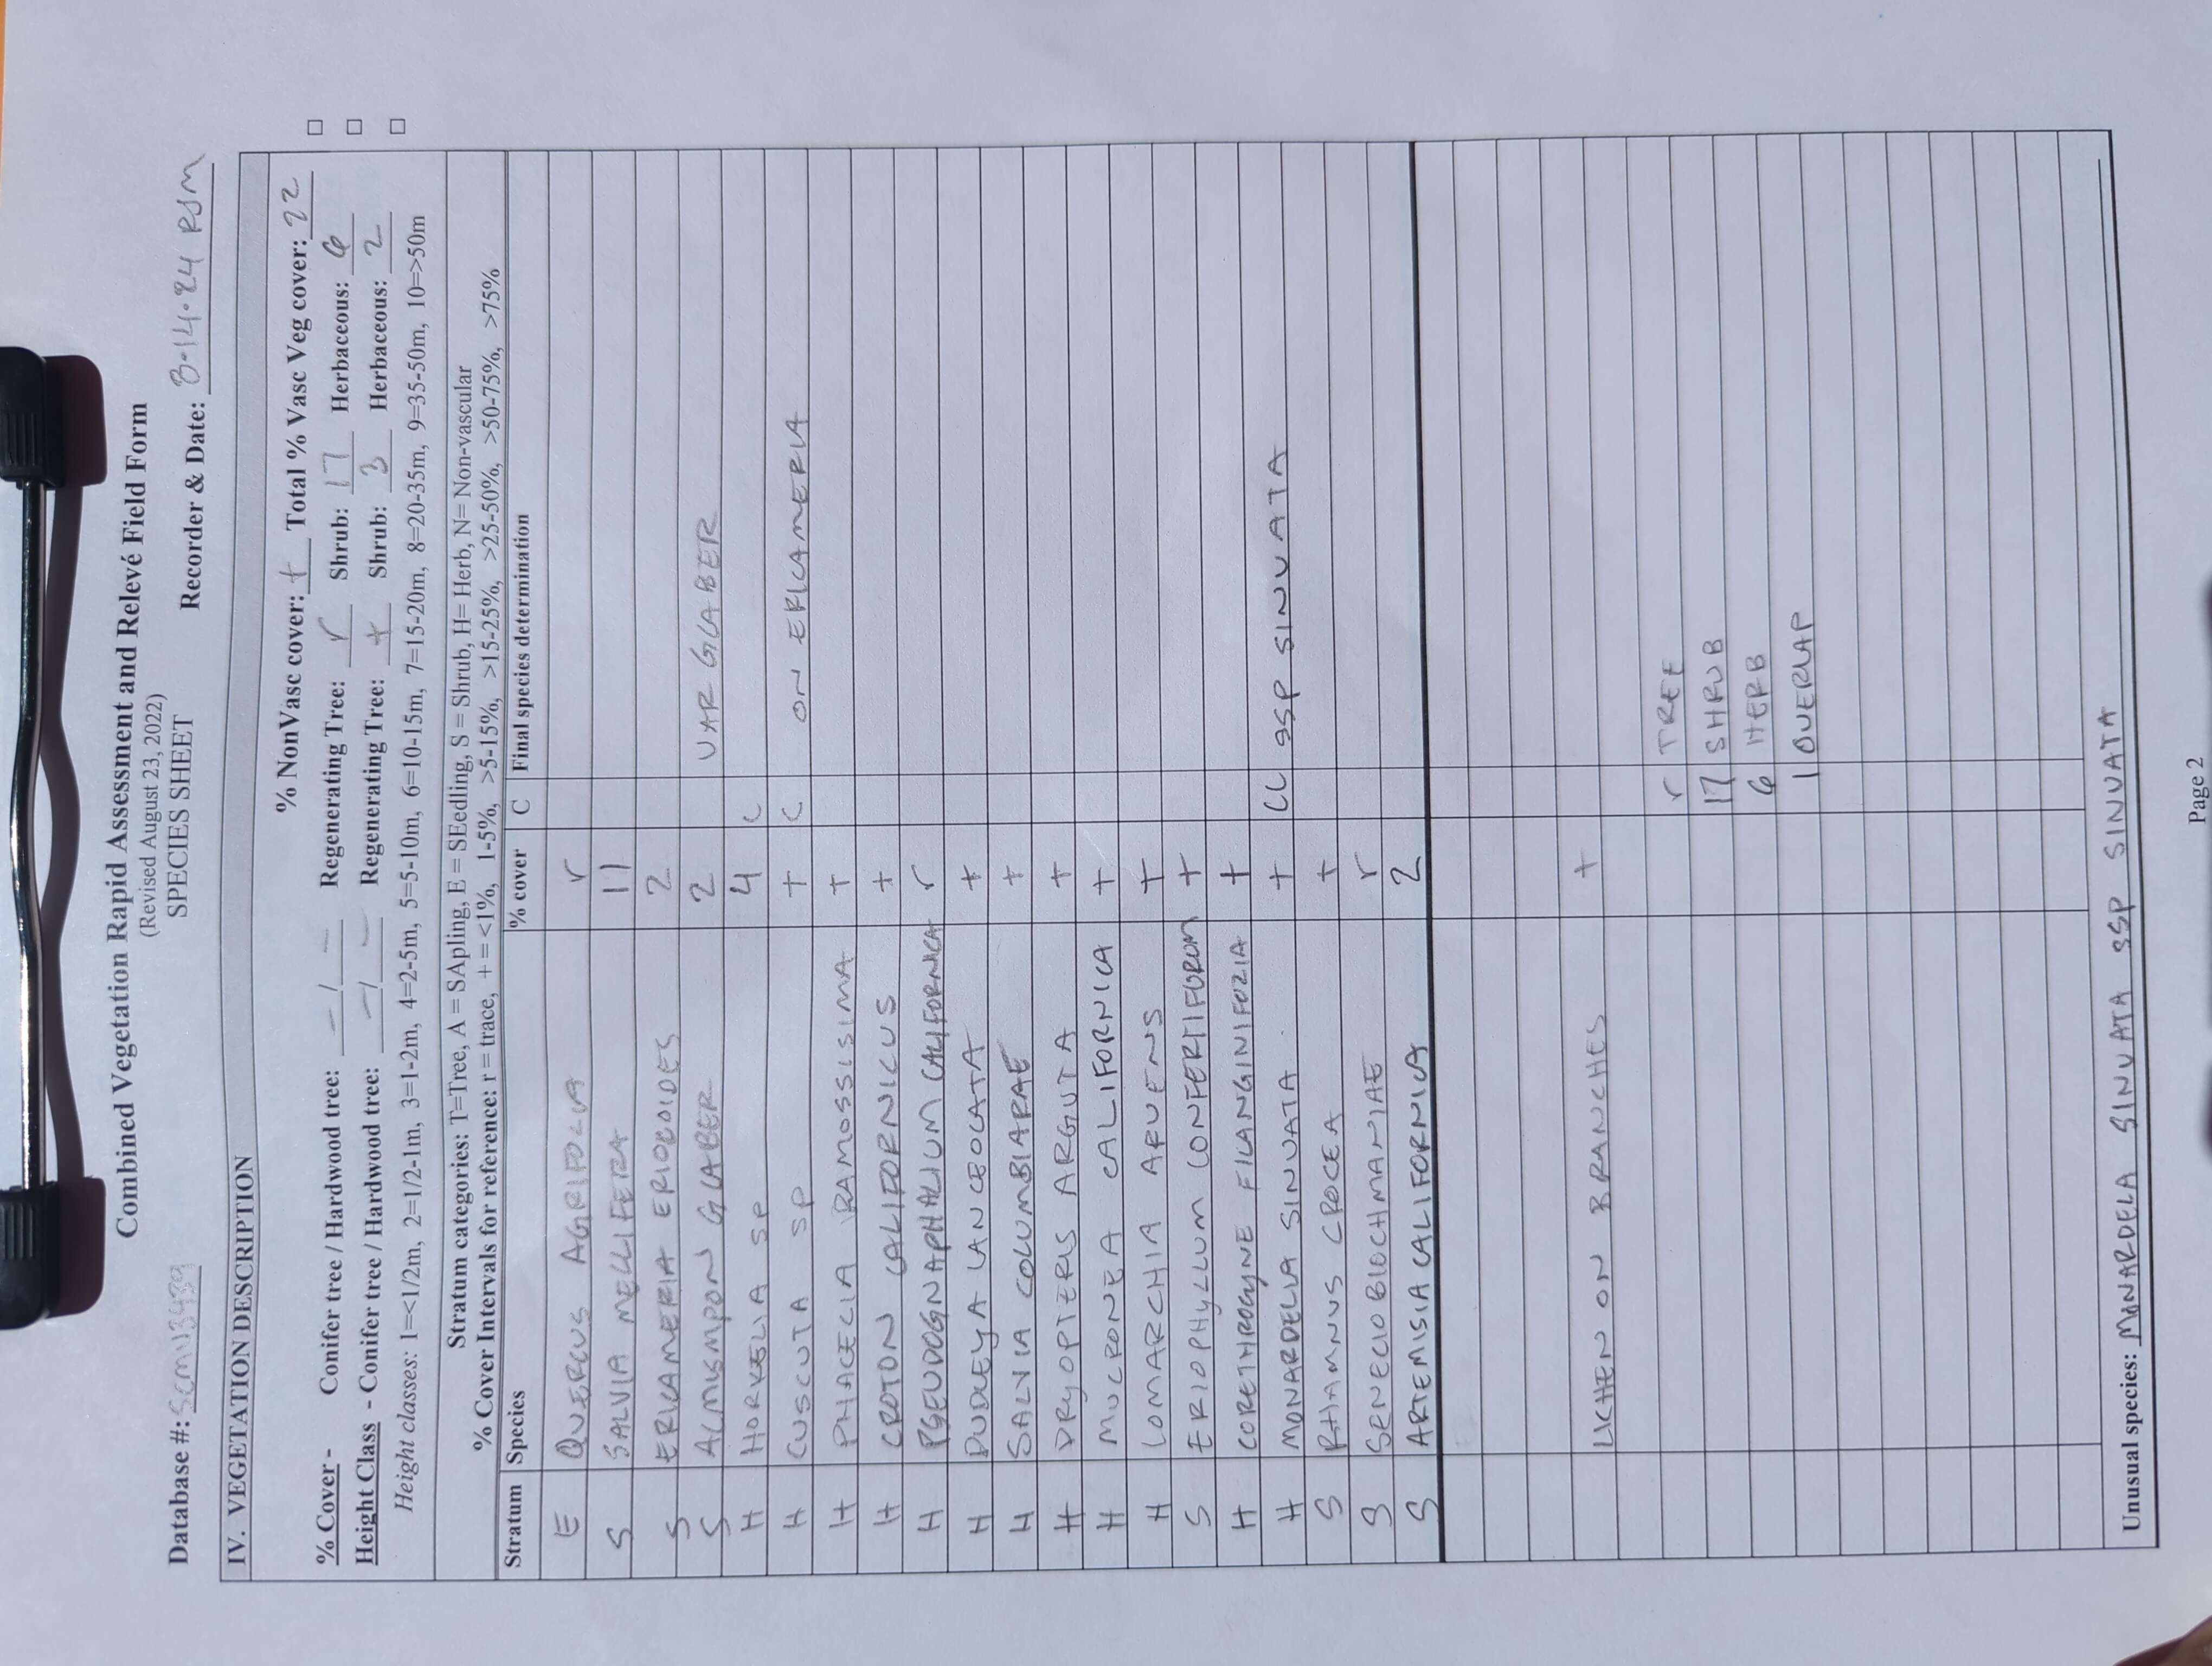 Combined Vegetation Rapid Assessment and Relevé Field Form
(Revised August 23, 2022)
SPECIES SHEET
Database #: SCMU13439 Recorder & Date: 3-14-24 RSM
IV. VEGETATION DESCRIPTION
% NonVasc cover: + Total % Vasc Veg cover: 22 □
% Cover - Conifer tree / Hardwood tree: — / — Regenerating Tree: r Shrub: 17 Herbaceous: 6 □
Height Class - Conifer tree / Hardwood tree: — / — Regenerating Tree: + Shrub: 3 Herbaceous: 2 □
Height classes: 1=<1/2m, 2=1/2-1m, 3=1-2m, 4=2-5m, 5=5-10m, 6=10-15m, 7=15-20m, 8=20-35m, 9=35-50m, 10=>50m
Stratum categories: T=Tree, A = SApling, E = SEedling, S = Shrub, H= Herb, N= Non-vascular
% Cover Intervals for reference: r = trace, + = <1%, 1-5%, >5-15%, >15-25%, >25-50%, >50-75%, >75%
Stratum Species % cover C Final species determination
E QUERCUS AGRIFOLIA r
S SALVIA MELLIFERA 17
S ERICAMERIA ERICOIDES 2
S ACMISMPON GLABER 2 VAR GLABER
H HORKELIA SP 4 C
H CUSCUTA SP + C ON ERICAMERIA
H PHACELIA RAMOSSISIMA +
H CROTON CALIFORNICUS +
H PSEUDOGNAPHALIUM CALIFORNICA r
H DUDLEYA LANCEOLATA +
H SALVIA COLUMBIARAE +
H DRYOPTERUS ARGUTA +
H MUCRONEA CALIFORNICA +
H LOMARCHIA ARVENS +
S ERIOPHYLLUM CONFERTIFORUM +
H CORETHROGYNE FILANGINIFOZIA +
H MONARDELLA SINUATA + CC SSP SINUATA
S RHAMNUS CROCEA +
S SENECIO BLOCHMANIAE r
S ARTEMISIA CALIFORNICA 2
LICHEN ON BRANCHES +
r TREE
17 SHRUB
6 HERB
1 OVERLAP
Unusual species: MONARDELA SINUATA SSP SINUATA
Page 2